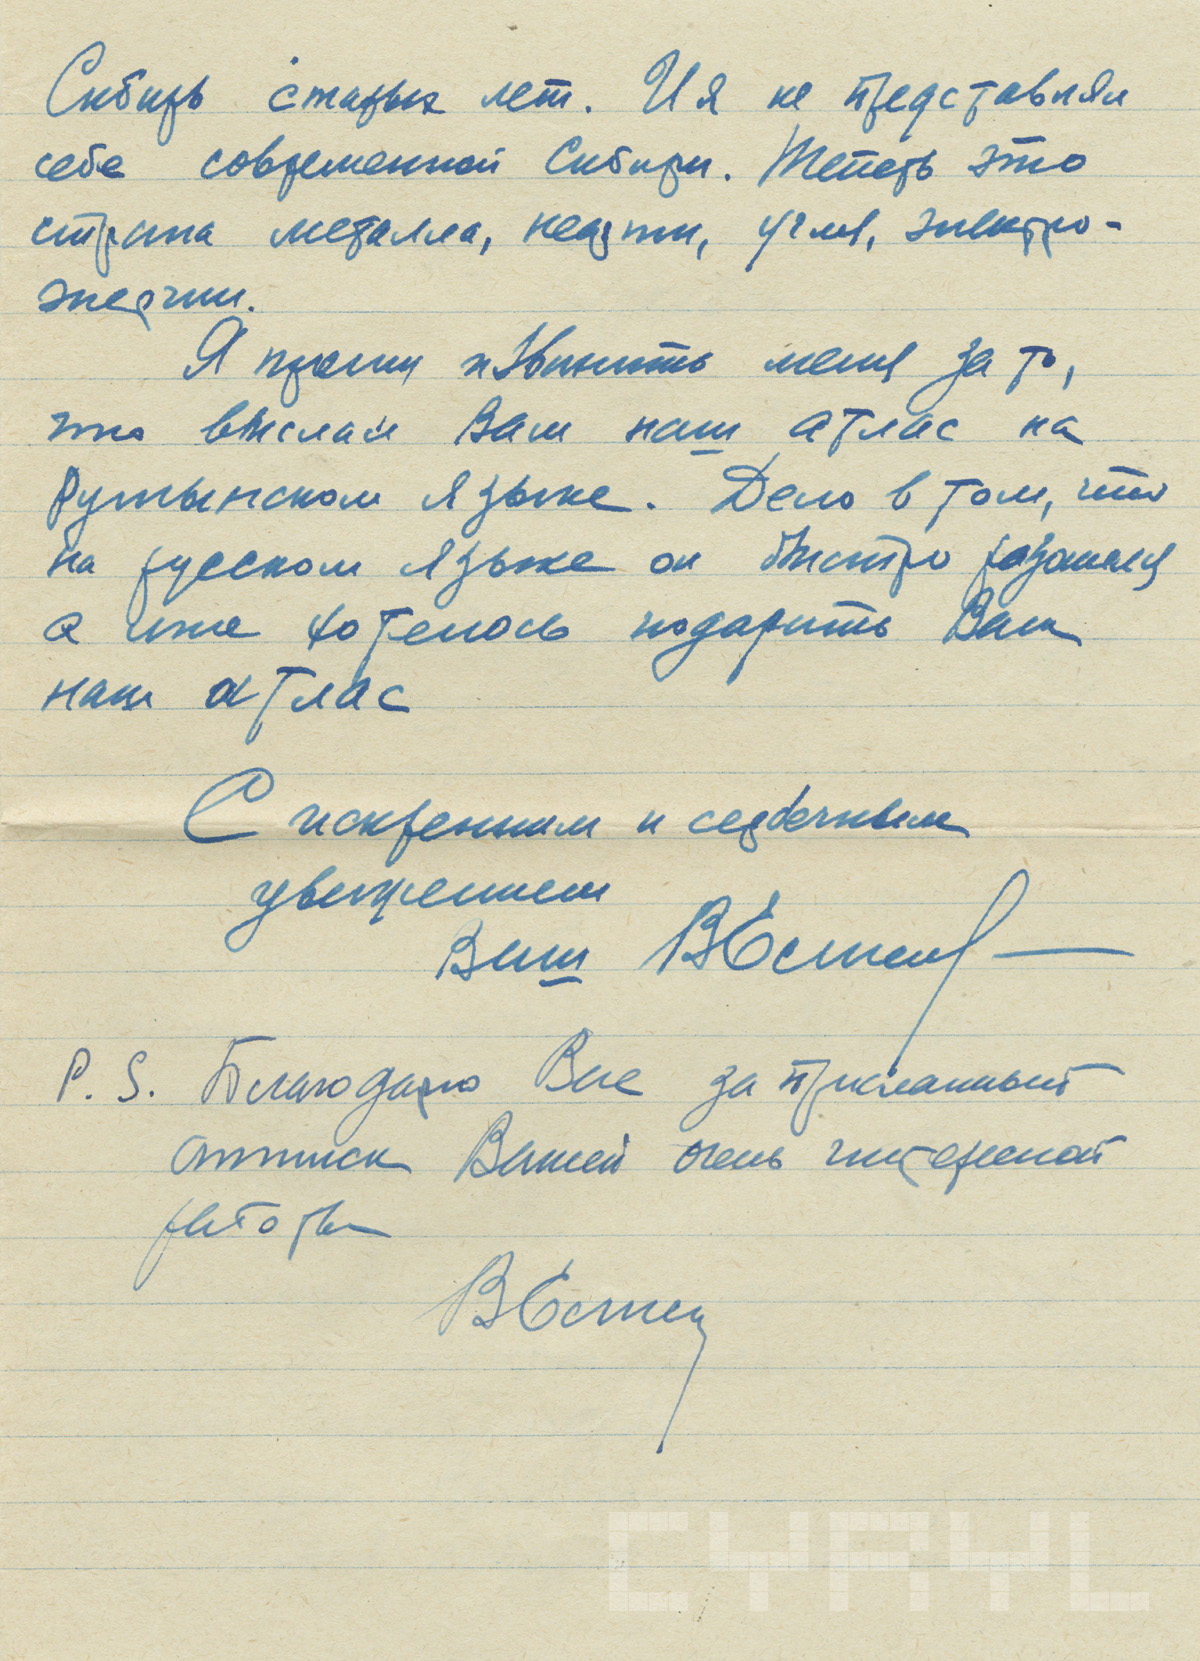 Сибирь старых лет. И я не представлял
себе современной Сибири. Теперь это
страна металла, нефти, угля, электро-
энергии.
Я прошу извинить меня за то,
что выслал Вам наш атлас на
румынском языке. Дело в том, что
на русском языке он быстро разошелся
а мне хотелось подарить Вам
наш атлас
С искренним и сердечным
уважением
Ваш
P. S. Благодарю Вас за присланный
оттиск Вашей очень интересной
работы
CYRYL